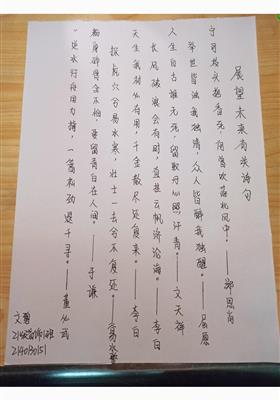 展望未来有关诗句
宁可枝头抱香死,何曾吹落北风中!——郑思肖
举世皆浊我独清,众人皆醉我独醒。——屈原
人生自古谁无死,留取丹心照汗青。——文天祥
长风破浪会有时,直挂云帆济沧海。——李白
天生我材必有用,千金散尽还复来。——李白
探虎穴兮易水寒,壮士一去兮不复还。——
粉身碎骨全不怕,要留青白在人间。——于谦
一定水行舟用力撑,一篙松劲退千寻。——董必武
文
2140130151